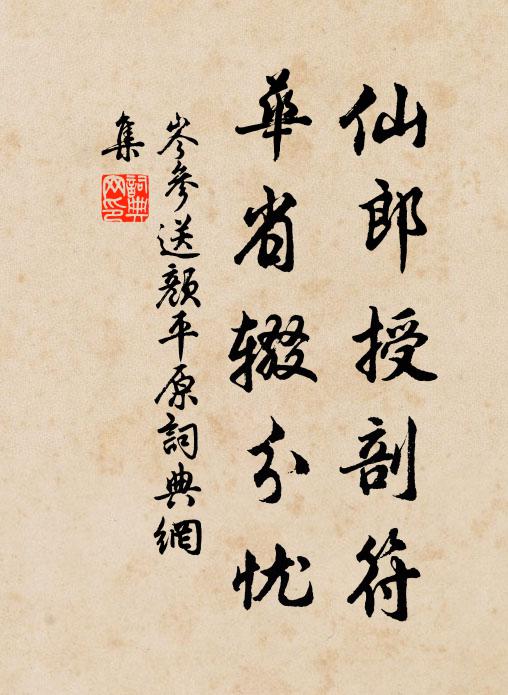 仙郎授剖符
華省辍分忧
岑參送顏平原詞典網
集
詞典
网印